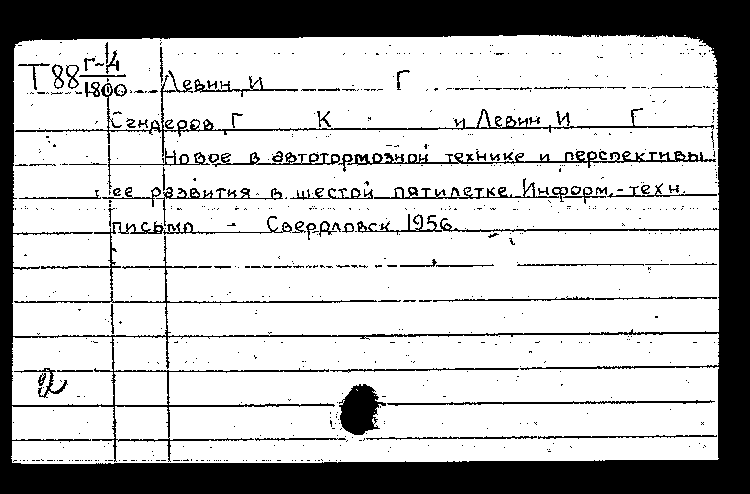 Т88 г-4
1800 Левин, И Г
Сендеров, Г К и Левин, И Г
Новое в автотормозной технике и перспективы
ее развития в шестой пятилетке. Информ.-техн.
письмо - Свердловск, 1956.
2